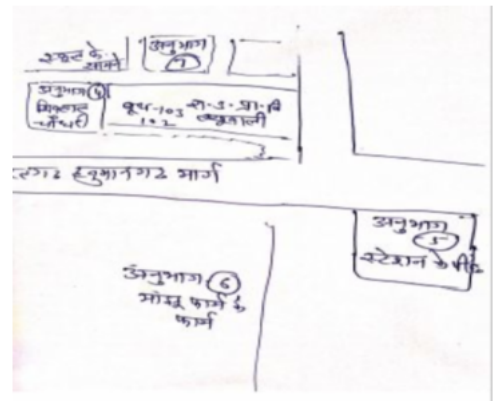 स्कूल के
सामने
अनुभाग
7
अनुभाग
चौधरी
बूथ-103 रा.उ.प्रा.वि
102
हनुमानगढ मार्ग
अनुभाग
5
स्टेशन के पीछे
अनुभाग 6
फार्म के
फार्म